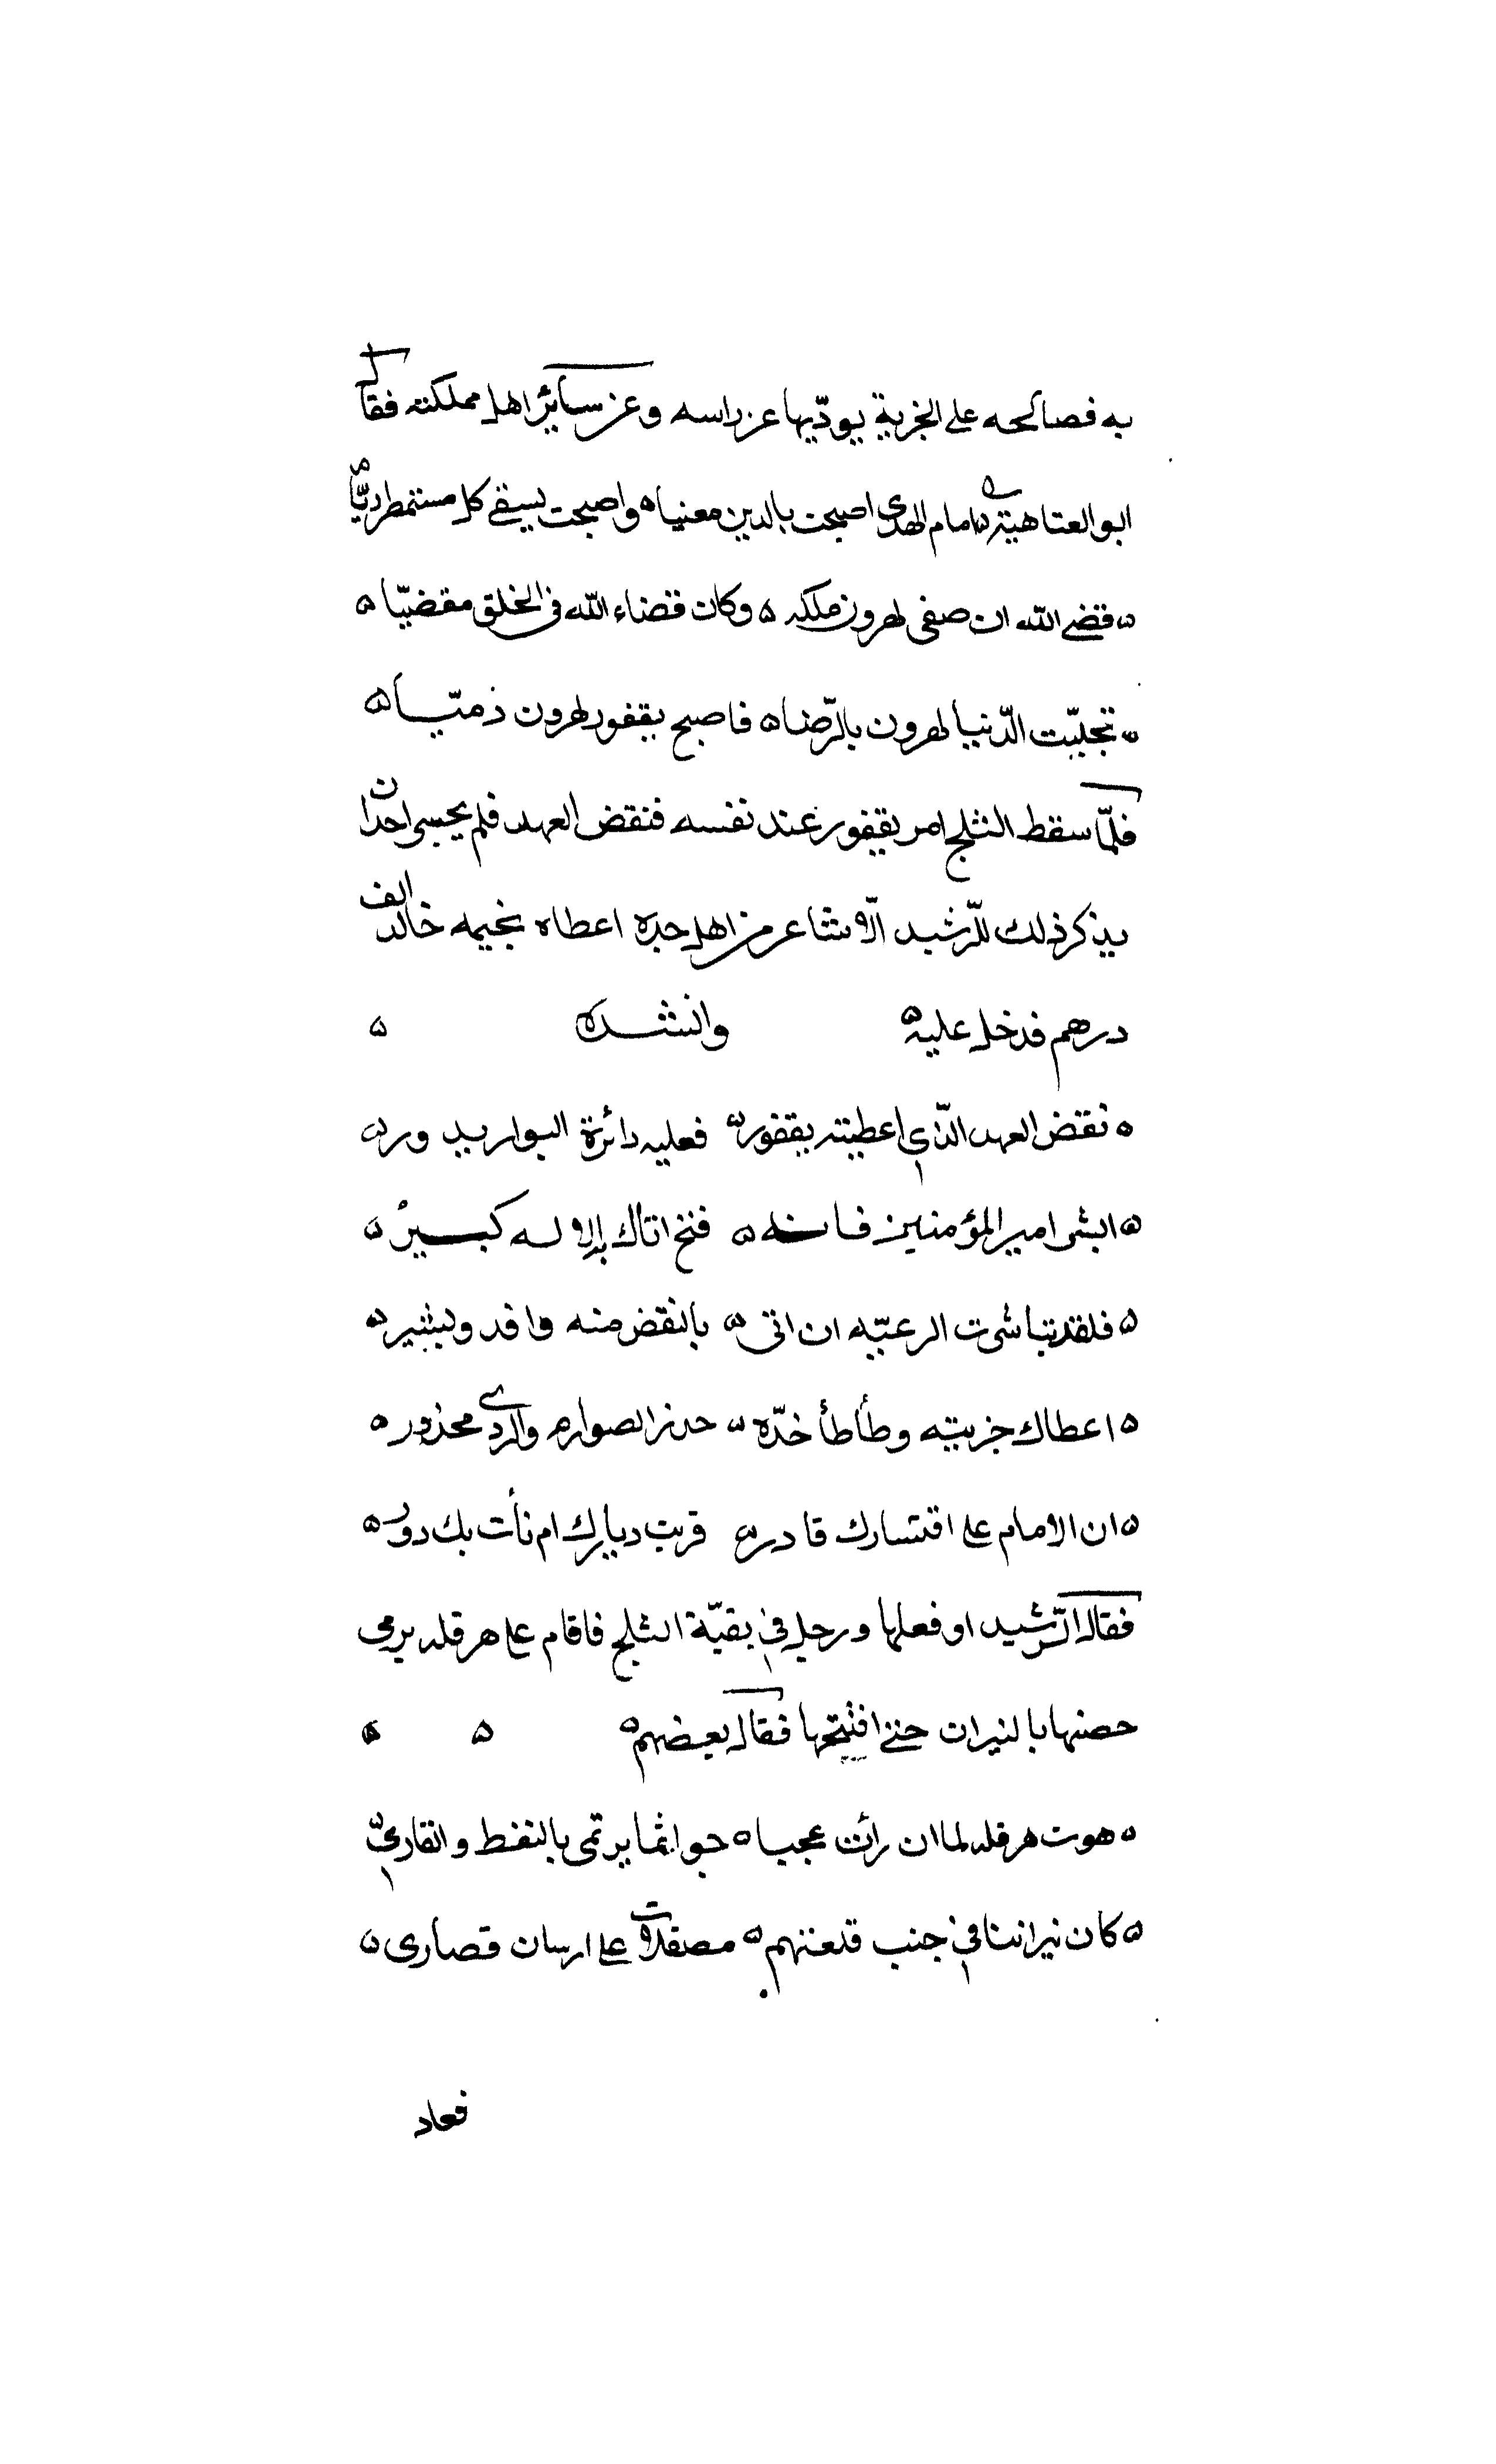 به فصالحه على الجزية يودّيها عن راسه وعن سائر اهل مملكته فقال
ابو العتاهية ه امام الهدى اصبحت بالدين معنيا ه واصبحت تسقى كل مستمطر ريّا ه
ه قضى الله ان صفى لهرون ملكه ه وكان قضاء الله فى الخلق مقضيّا ه
ه تجلبّت الدّنيا لهرون بالرّضا ه فاصبح يقفور لهرون ذميّا ه
فلمّا سقط الثلج امر يقفور عند نفسه فنقض العهد فلم يجسر احد ان
يذكر ذلك للرّشيد الّا شاعر من اهل جدة اعطاه يحيى خالد الف
درهم فدخل عليه ه وانشده ه
ه نقض العهد الّذى اعطيته يقفور ه فعليه دائرة البوار يدور ه
ه ابشر امير المؤمنين فانه ه فتح اتاك به الاله كبير ه
ه فلقد تباشرت الرعيّه ان اتى ه بالنقض منه وافد وبشير ه
ه اعطاك جزيته وطأطأ خدّه ه حذر الصوارم والردى محذور ه
ه ان الامام على اقتسارك قادر ه قربت ديارك ام نأت بك دور ه
فقال الرّشيد او فعلها ورحل فى بقيّة الثلج فاقام على هرقله يرمى
حصنها بالنيران حتى افتتحها فقال بعضهم ه ه ه
ه هوت هرقله لما ان رأت عجبا ه جواثما يرتمى بالنفط والقارى ه
ه كان نيراننا فى جنب قلعتهم ه مصقلات على ارسان قصارى ه
فعاد